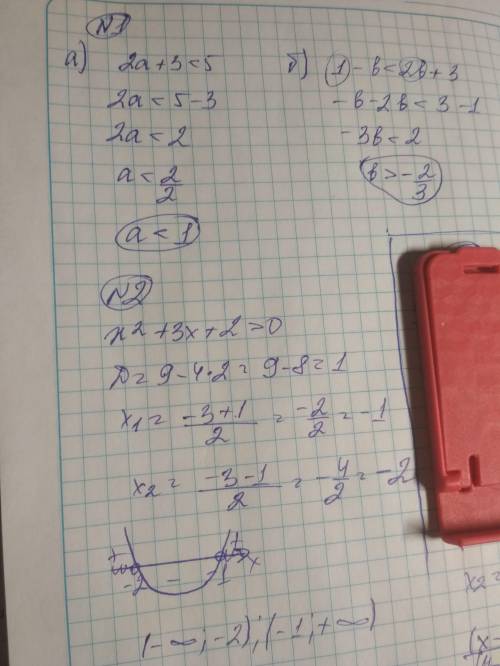 N1
а) 2a+3<5
2a<5-3
2a<2
a<2/2
a<1
б) 1-b<2b+3
-b-2b<3-1
-3b<2
b>-2/3
N2
x²+3x+2>0
D=9-4·2=9-8=1
x1=(-3+1)/2=-2/2=-1
x2=(-3-1)/2=-4/2=-2
+ - + x
-2 -1
(-∞;-2);(-1;+∞)
x2=